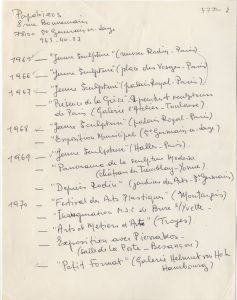 Papoltzos
8 rue Bonnemain
78100 St Germain en Laye
963-40-23
1965 — "Jeune Sculpture" (musée Rodin - Paris)
1966 — "Jeune Sculpture" (place des Vosges - Paris)
1967 — "Jeune Sculpture" (palais Royal - Paris)
— Peintres et sculpteurs
de Paris (Galerie l'Atelier - Toulouse)
1968 — "Jeune Sculpture" (palais Royal - Paris)
— "Exposition Municipal (St Germain-en-Laye)
1969 — "Jeune Sculpture" (Halles - Paris)
— "Panorama de la sculpture Moderne
(château du Tremblay - Yonne)
— "Depuis Rodin" (jardin des Arts - St Germain)
1970 — "Festival des Arts Plastiques" (Montargis)
— "Inauguration MJC de Brune"
— "Arts et Métiers d'Art" (Troyes)
— Exposition avec
(Salle de la Poste - Besançon)
— "Petit Format" (Galerie
Hambourg)